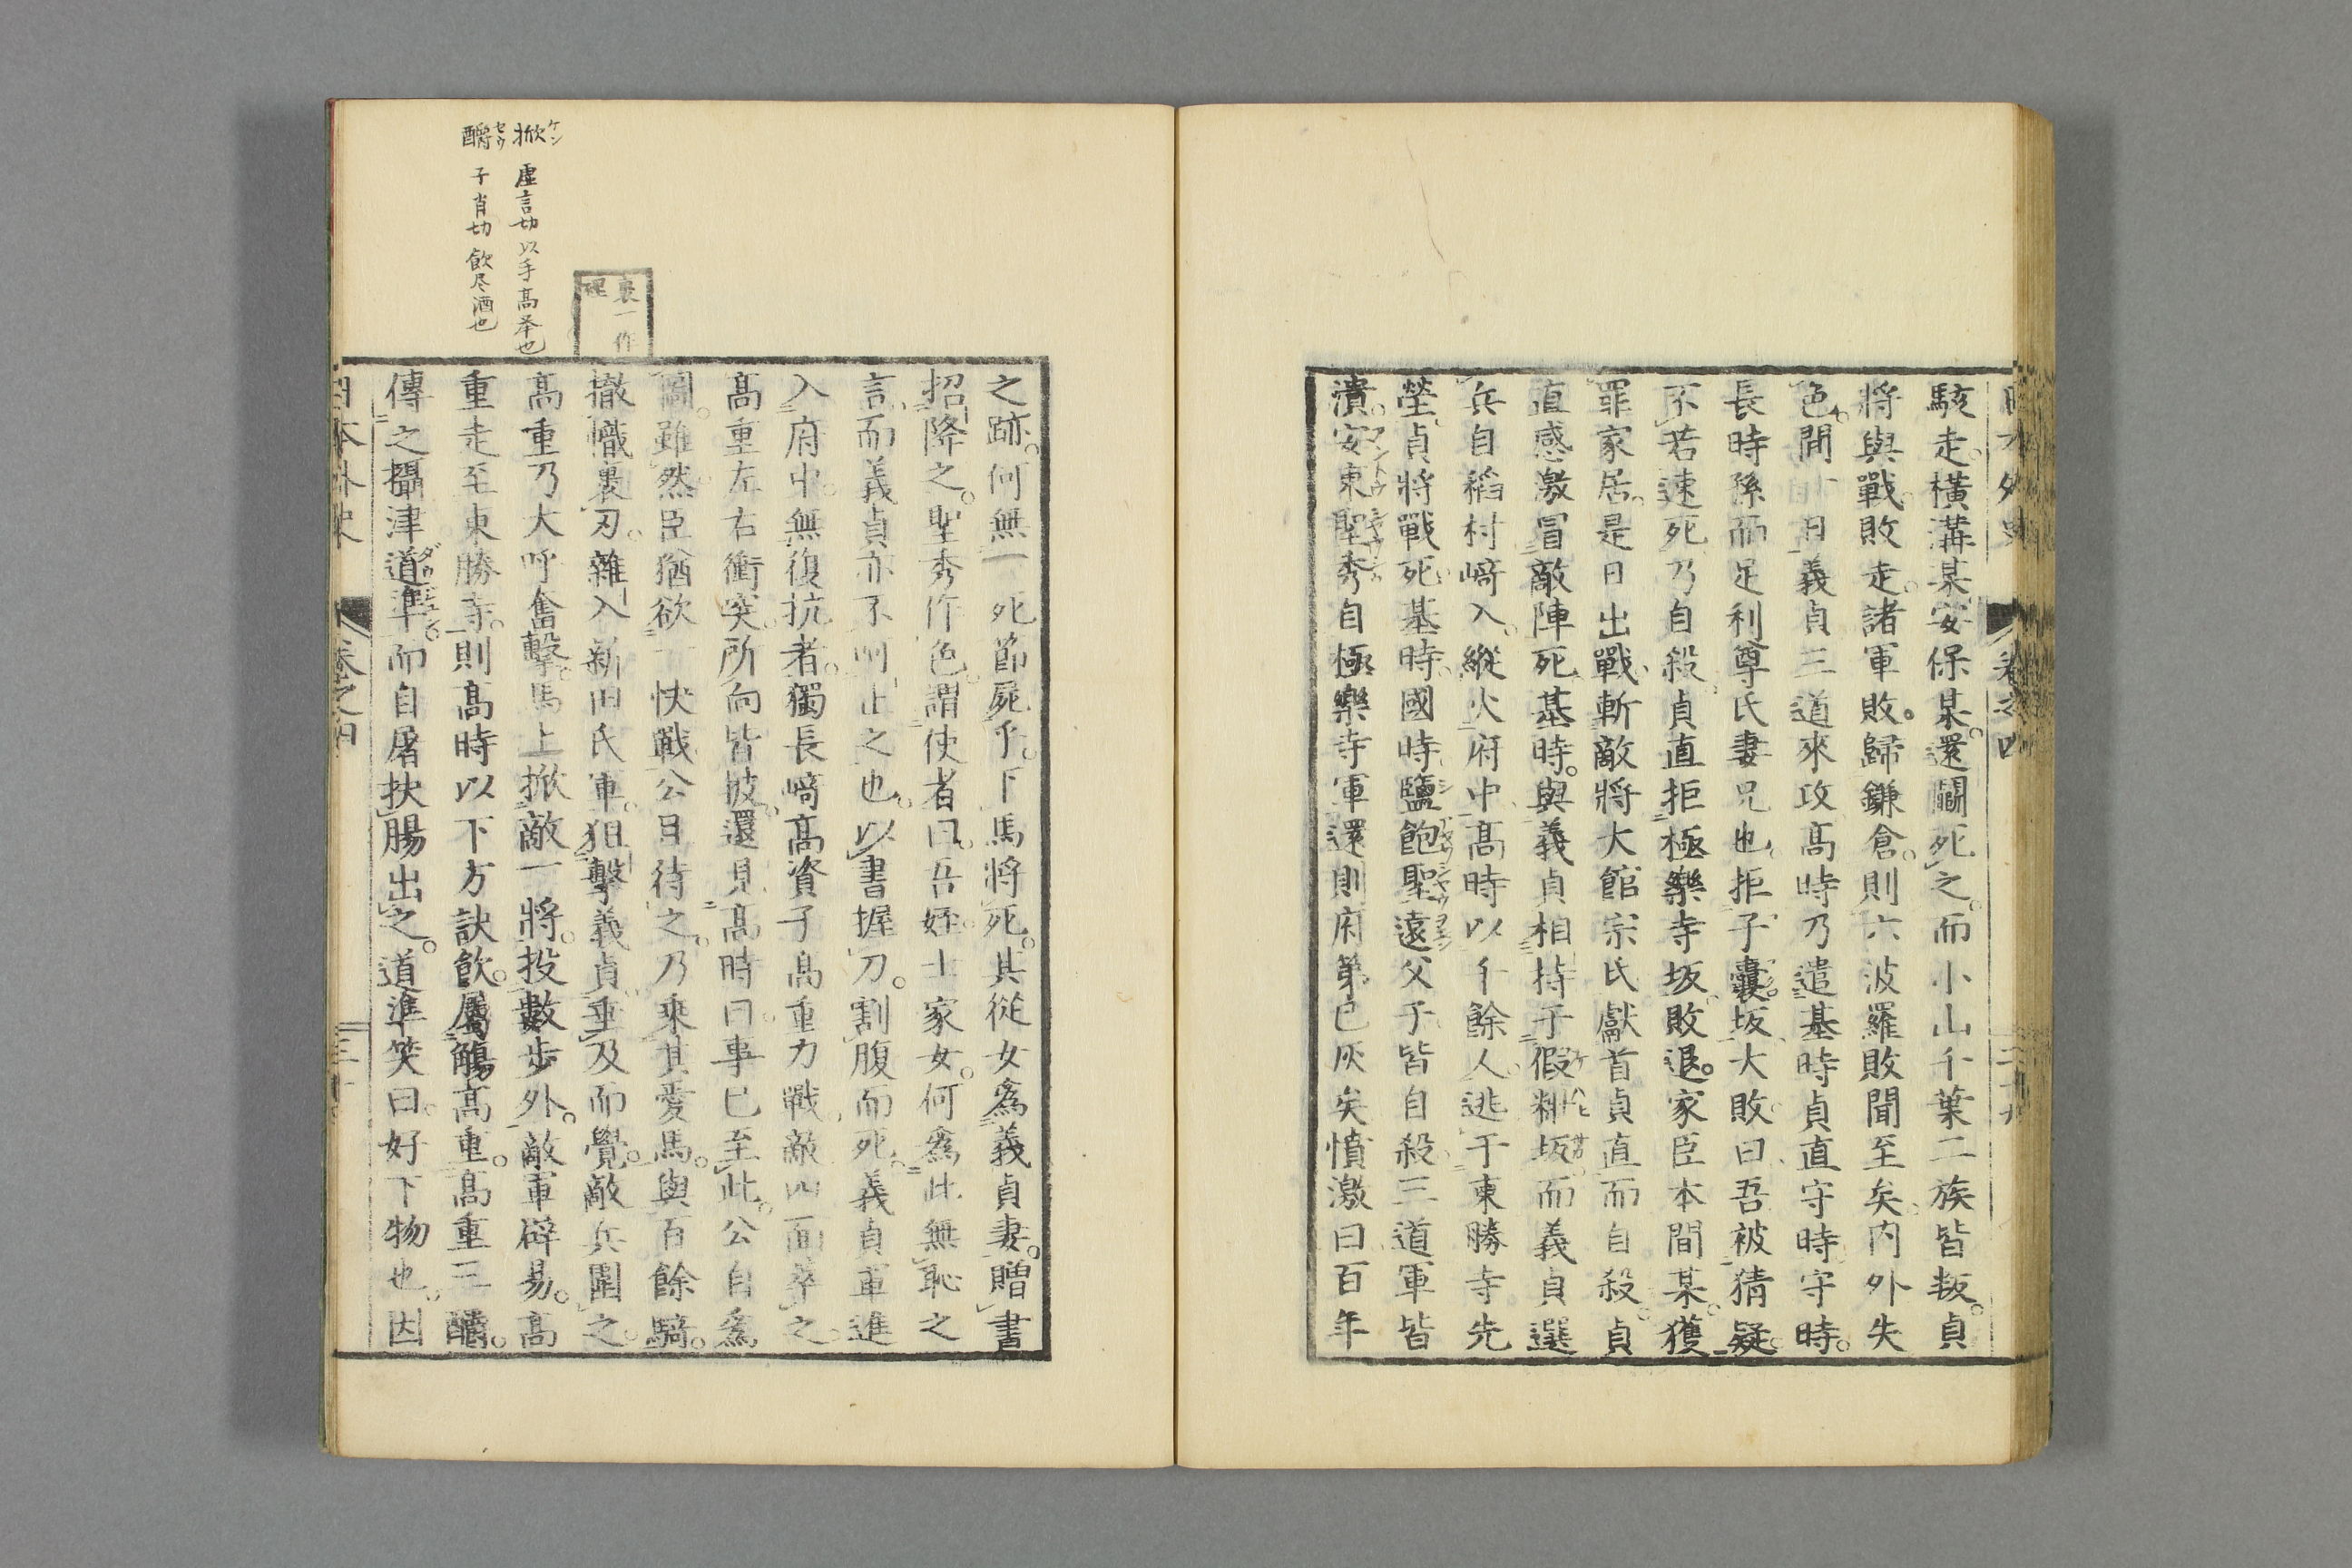 日本外史 卷之四 二十九
駭走。橫溝某安保某。還鬭死之。而小山千葉二族皆叛。貞
將與戰。敗走。諸軍敗。歸鎌倉。則六波羅敗聞至矣。內外失
色。間日義貞三道來攻高時乃遣基時貞直守時。守時。
長時孫而足利尊氏妻兄也。拒子囊坂。大敗。曰吾被猜疑。
不若速死乃自殺。貞直拒極樂寺坂。敗退。家臣本間某。獲
罪家居。是日出戰。斬敵將大館宗氏獻首貞直而自殺。貞
直感激冒敵陣死。基時。與義貞相持于假粧坂而義貞選
兵自稻村﨑入。縱火府中。高時以千餘人。逃于東勝寺先
塋。貞將戰死。基時。國時。鹽飽聖遠父子皆自殺。三道軍皆
潰。安東聖秀自極樂寺軍還則府第已灰矣憤激曰百年
之跡。何無一死節屍乎。下馬將死。其從女爲義貞妻。贈書
招降之。聖秀作色。謂使者曰。吾姪。士家女。何爲此無恥之
言。而義貞亦不呵止之也。以書握刀。割腹而死。義貞軍進
入府中。無復抗者。獨長﨑高資子高重力戰。敵四面萃之。
高重左右衝突。所向皆披。還見高時曰。事已至此。公自爲
圖。雖然臣猶欲一快戰公且待之。乃乘其愛馬。與百餘騎。
撤幟裹刃。雜入新田氏軍。狙擊義貞。垂及而覺。敵兵圍之。
高重乃大呼奮擊。馬上掀敵一將。投數步外。敵軍辟易。高
重走至東勝寺。則高時以下方訣飲。屬觴高重。高重三釂。
傳之攝津道準。而自屠抉腸出之。道準笑曰。好下物也。因
日本外史 卷之四 三十
裹一作
裡
掀 ケン 虛言切以手高挙也
釂 セウ 子肖切飲尽酒也